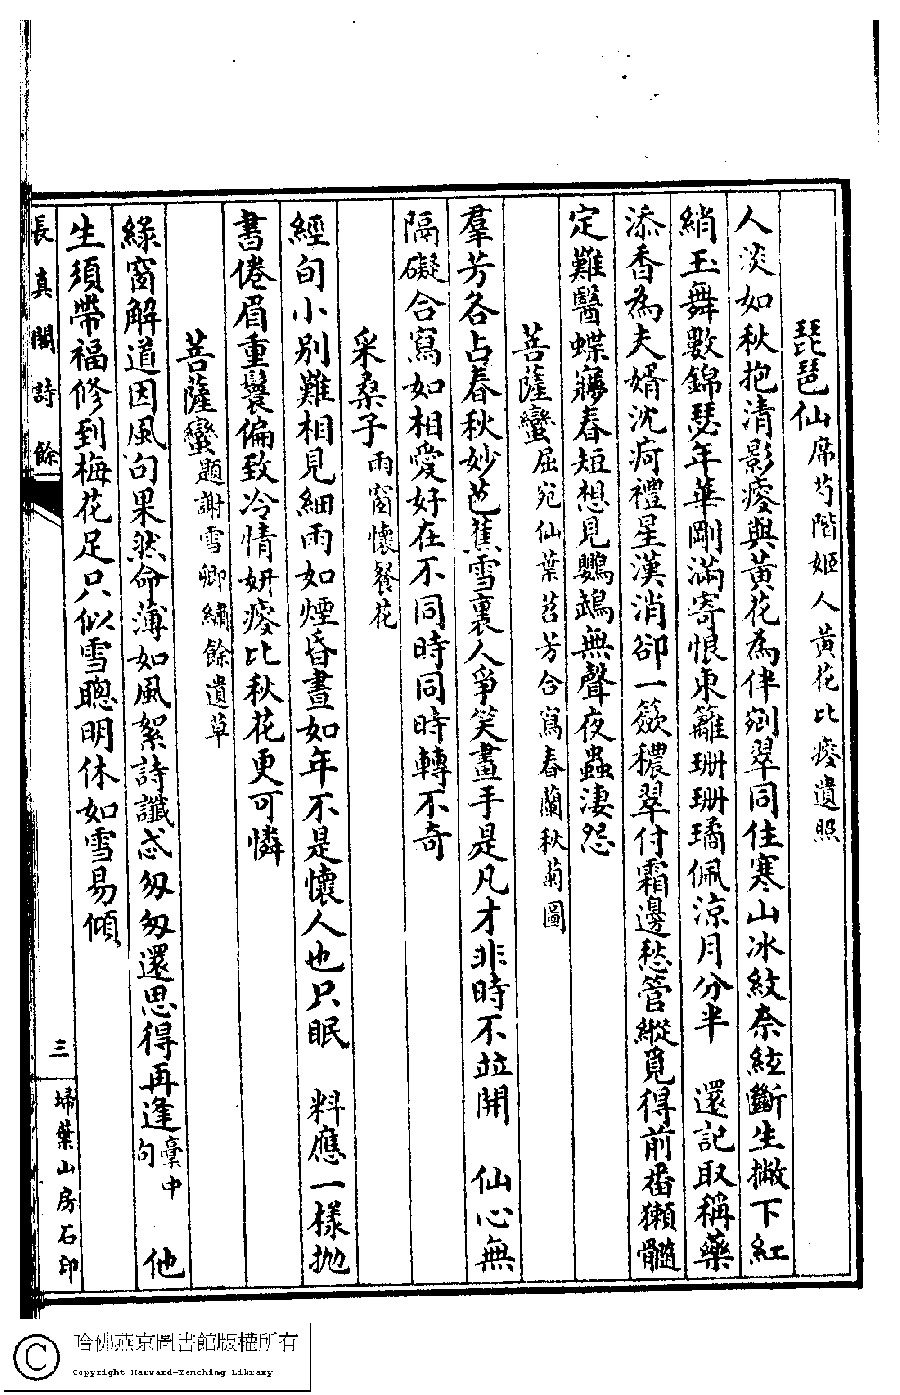 琵琶仙 席芍階姬人黃花比瘦遺照
人淡如秋抱清影瘦與黃花為伴剛翠同住寒山冰紋奈絃斷生撇下紅
綃玉舞數錦瑟年華剛滿寄恨東籬珊珊璚佩涼月分半　還記取稱藥
添香為夫婿沈疴禮星漢消卻一籨穠翠付霜邊愁管縱覓得前番獺髓
定難醫蝶寢春短想見鸚鵡無聲夜蟲淒怨
菩薩蠻 屈宛仙葉苕芳合寫春蘭秋菊圖
羣芳各占春秋妙芭蕉雪裏人爭笑畫手是凡才非時不並開　仙心無
隔礙合寫如相愛好在不同時同時轉不奇
采桑子 雨窗懷餐花
經旬小別難相見細雨如煙昏晝如年不是懷人也只眠　料應一樣拋
書倦眉重鬟偏致冷情妍瘦比秋花更可憐
菩薩蠻 題謝雪卿繡餘遺草
綠窗解道因風句果然命薄如風絮詩讖忒匆匆還思得再逢 稾中句　他
生須帶福修到梅花足只似雪聰明休如雪易傾
長真閣詩餘
三
埽葉山房石印
哈佛燕京圖書館版權所有
Copyright Harvard-Yenching Library